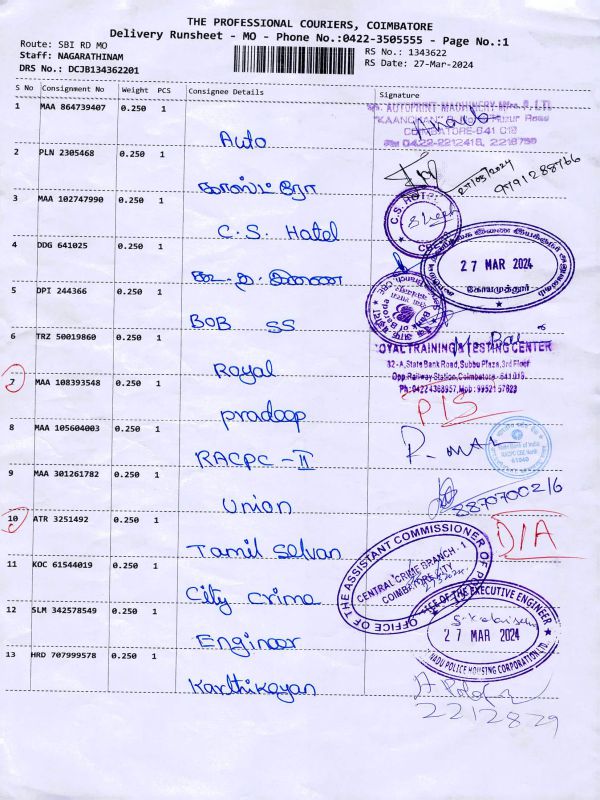 THE PROFESSIONAL COURIERS, COIMBATORE
Delivery Runsheet - MO - Phone No.:0422-3505555 - Page No.:1
Route: SBI RD MO
Staff: NAGARATHINAM
DRS No.: DCJB134362201
RS No.: 1343622
RS Date: 27-Mar-2024
S No Consignment No Weight PCS Consignee Details Signature
1 MAA 864739407 0.250 1 Auto
AUTOPRINT MACHINERY Mfrs.
COIMBATORE-641 018
0422-2212418, 2218799
2 PLN 2305468 0.250 1
27/03/2024
9791288766
3 MAA 102747990 0.250 1 C.S. Hatel
C.S. HOTEL
4 DDG 641025 0.250 1 கூ.ப. இணை
27 MAR 2024
கோயமுத்தூர்
5 DPI 244366 0.250 1 BOB SS
Bank of Baroda
6 TRZ 50019860 0.250 1 Royal
ROYAL TRAINING & TESTING CENTER
32-A, State Bank Road, Subbu Plaza, 3rd Floor
Opp. Railway Station, Coimbatore - 641 018.
Ph: 04224368957, Mob: 9952157623
7 MAA 108393548 0.250 1 pradeep
P/S
8 MAA 105604003 0.250 1 RACPC - II
9 MAA 301261782 0.250 1 Union
8870700216
10 ATR 3251492 0.250 1 Tamil Selvan
D/A
11 KOC 61544019 0.250 1 City Crime
OFFICE OF THE ASSISTANT COMMISSIONER OF
CENTRAL CRIME BRANCH - 1
COIMBATORE CITY
12 SLM 342578549 0.250 1 Engineer
OFFICE OF THE EXECUTIVE ENGINEER
27 MAR 2024
NADU POLICE HOUSING CORPORATION LTD.
13 HRD 707999578 0.250 1 Karthikeyan
2212829